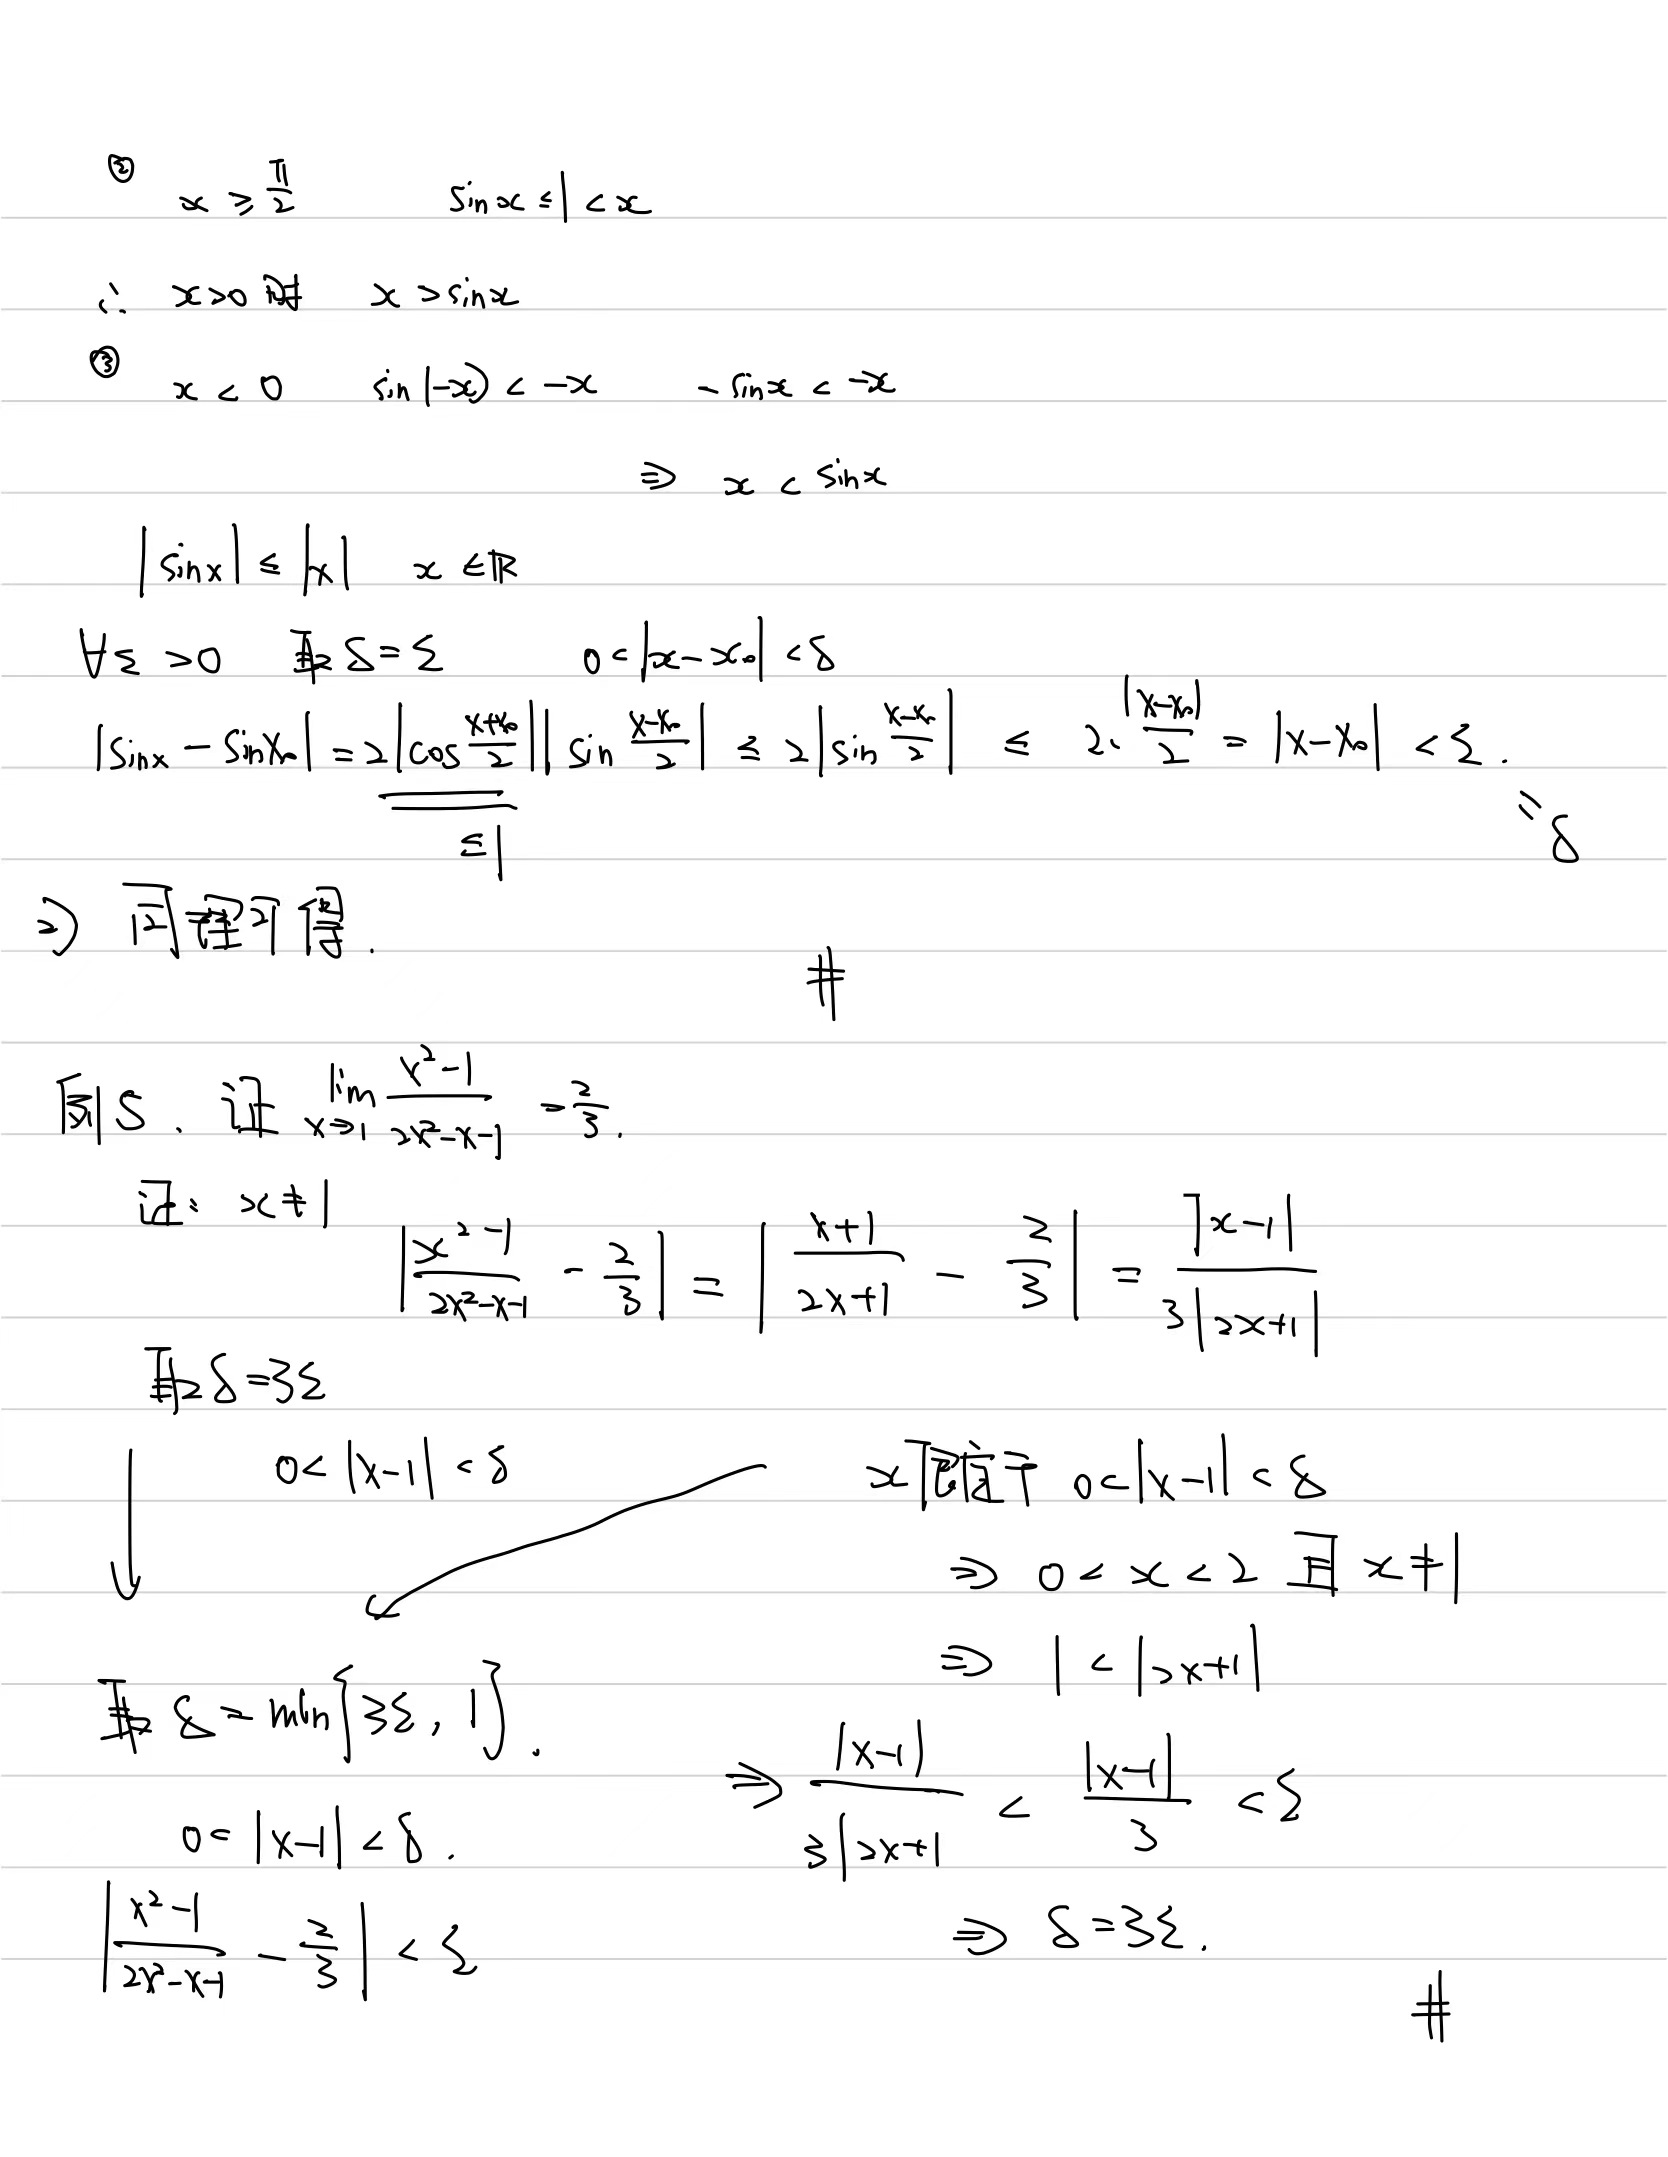 ② x ≥ π/2 sinx ≤ 1 < x
∴ x>0 时 x > sinx
③ x < 0 sin(-x) < -x -sinx < -x
⇒ x < sinx
|sinx| ≤ |x| x ∈ ℝ
∀ε >0 取 δ=ε 0<|x-x₀|<δ
|sinx - sinx₀| = 2|cos (x+x₀)/2||sin (x-x₀)/2| ≤ 2|sin (x-x₀)/2| ≤ 2·|x-x₀|/2 = |x-x₀| < ε.
≤1
=δ
2) 同理可得.
#
例5. 证 lim x→1 (x²-1)/(2x²-x-1) = 2/3.
证: x≠1
|(x²-1)/(2x²-x-1) - 2/3| = |(x+1)/(2x+1) - 2/3| = |x-1|/(3|2x+1|)
取δ=3ε
0<|x-1|<δ
x限定于 0<|x-1|<δ
⇒ 0<x<2 且 x≠1
⇒ 1<|2x+1|
取 δ=min{3ε, 1}.
⇒ |x-1|/(3|2x+1|) < |x-1|/3 < ε
0<|x-1|<δ.
|(x²-1)/(2x²-x-1) - 2/3| < ε
⇒ δ=3ε.
#